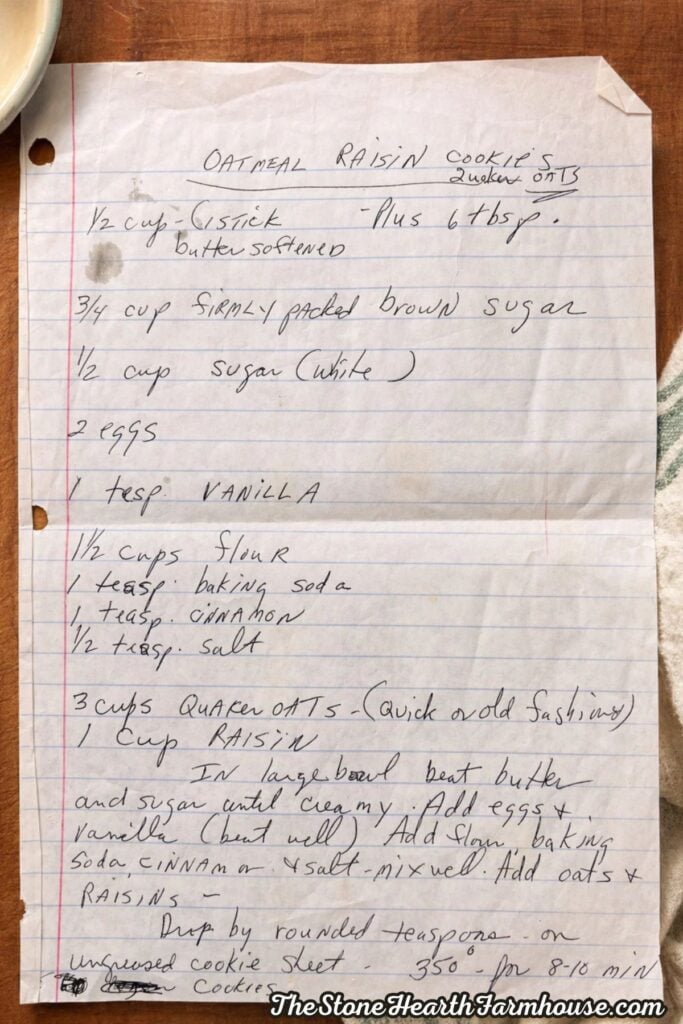 OATMEAL RAISIN COOKIES
Quaker OATS
1/2 cup - (1 STICK - Plus 6 tbsp.
butter SOFTENED
3/4 cup FIRMLY packed brown sugar
1/2 cup sugar (white)
2 eggs
1 tesp. VANILLA
1 1/2 cups flouR
1 teasp. baking soda
1 teasp. CINNAMON
1/2 teasp. salt
3 cups QUAKER OATS - (Quick or old fashioned)
1 Cup RAISIN
IN large bowl beat butter
and sugar until creamy. Add eggs &
vanilla (beat well) Add flour, baking
soda, CINNAMON & salt - mix well. Add oats &
RAISINS -
Drop by rounded teaspoons - on
ungreased cookie sheet - 350° - for 8-10 min
cookies
TheStoneHearthFarmhouse.com